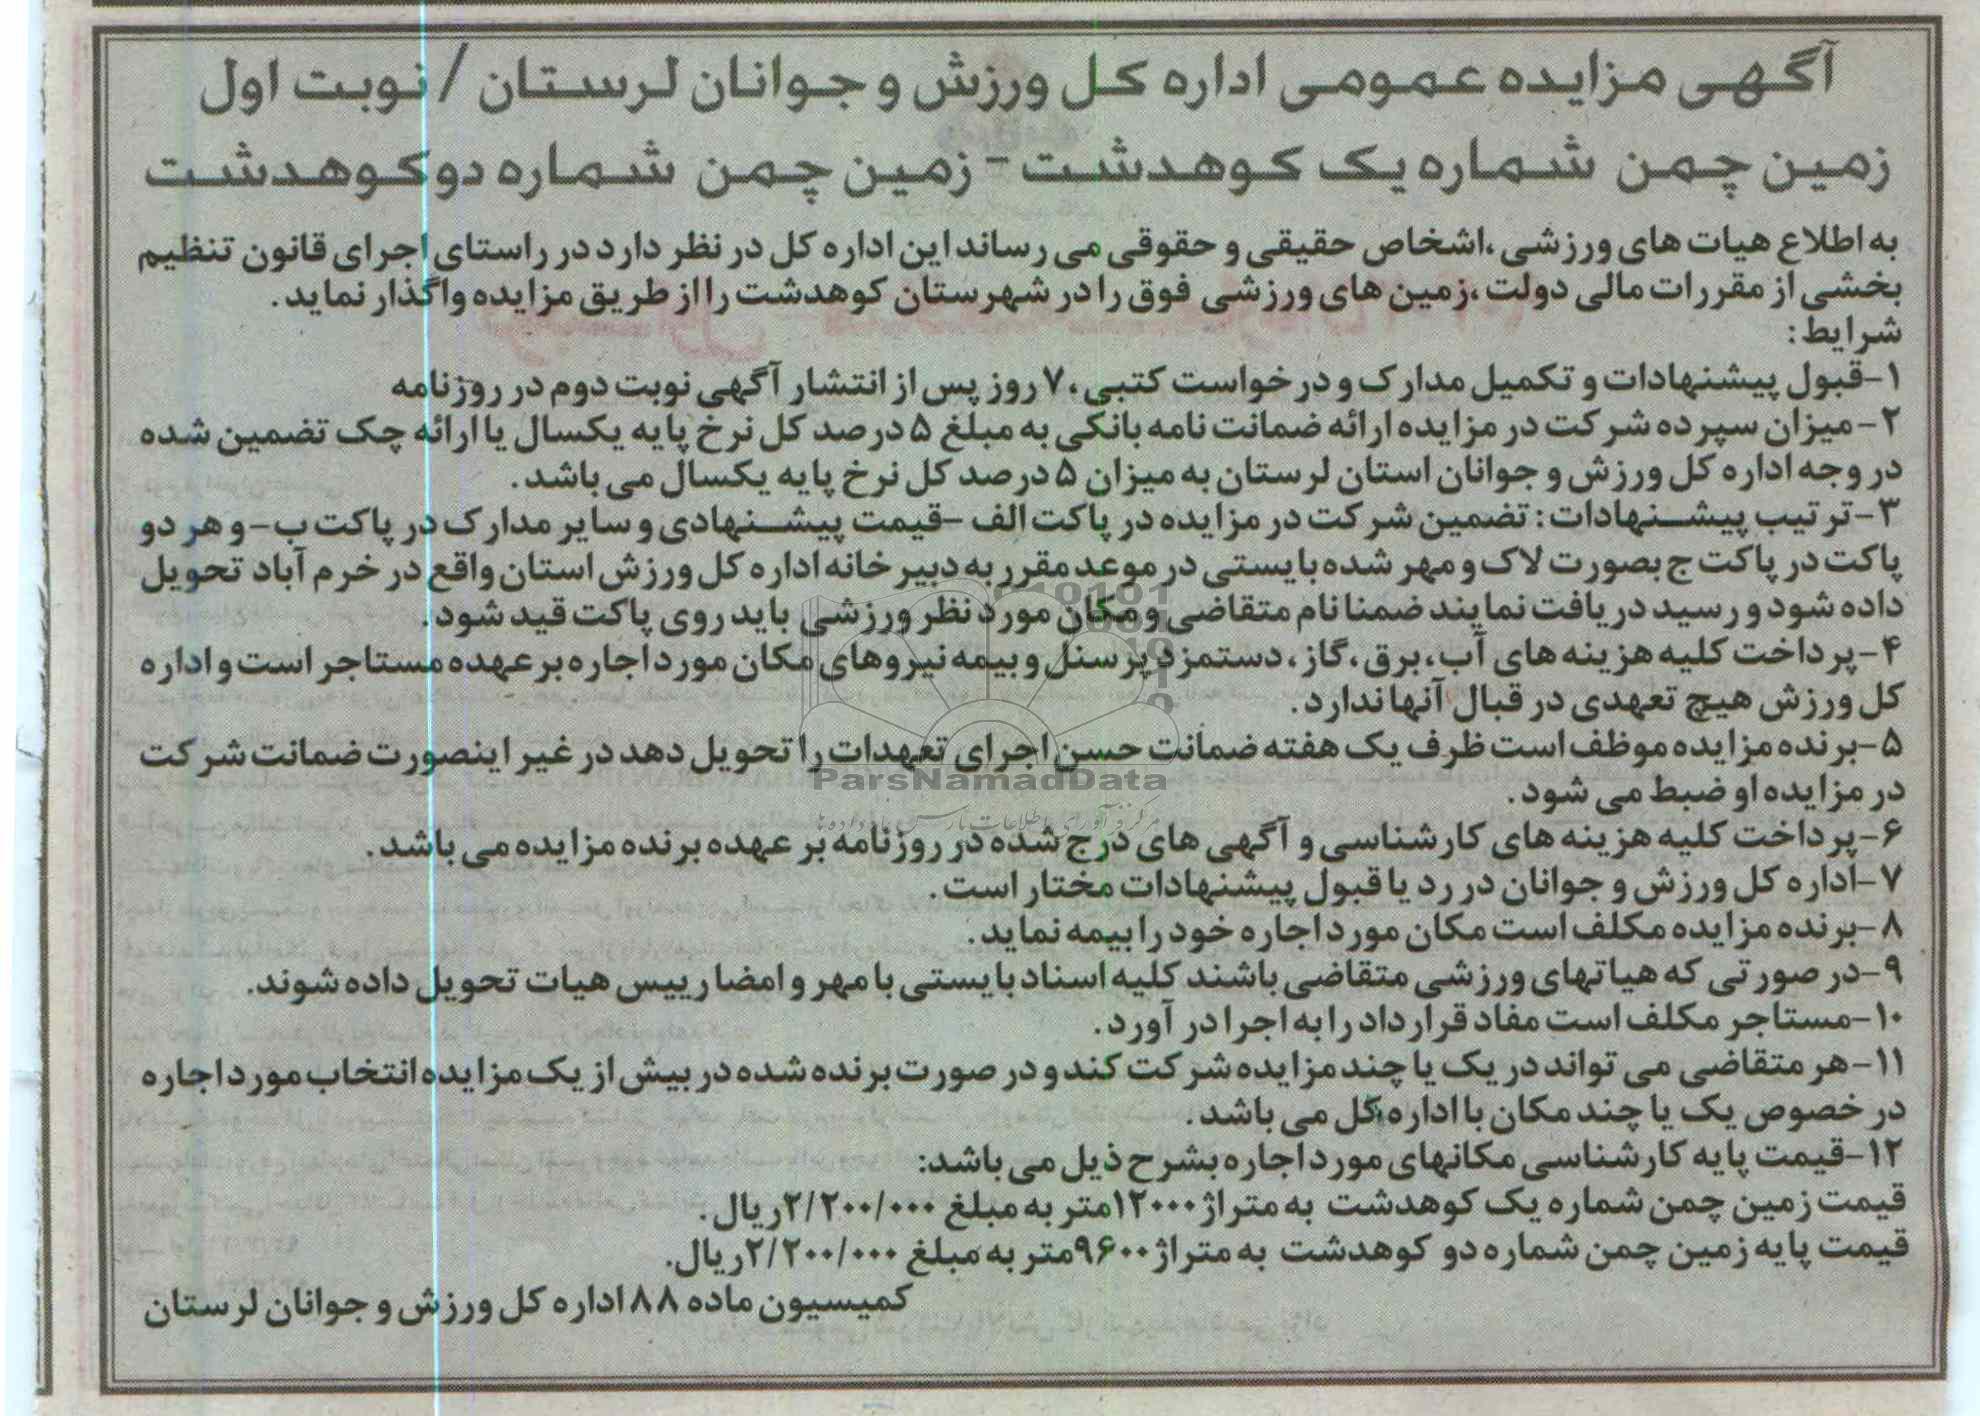 آگهی مزایده عمومی اداره کل ورزش و جوانان لرستان / نوبت اول
زمین چمن شماره یک کوهدشت - زمین چمن شماره دو کوهدشت
به اطلاع هیات های ورزشی ،اشخاص حقیقی و حقوقی می رساند این اداره کل در نظر دارد در راستای اجرای قانون تنظیم
بخشی از مقررات مالی دولت ،زمین های ورزشی فوق را در شهرستان کوهدشت را از طریق مزایده واگذار نماید .
شرایط :
۱-قبول پیشنهادات و تکمیل مدارک و درخواست کتبی ، ۷ روز پس از انتشار آگهی نوبت دوم در روزنامه
۲-میزان سپرده شرکت در مزایده ارائه ضمانت نامه بانکی به مبلغ ۵ درصد کل نرخ پایه یکسال یا ارائه چک تضمین شده
در وجه اداره کل ورزش و جوانان استان لرستان به میزان ۵ درصد کل نرخ پایه یکسال می باشد .
۳-ترتیب پیشنهادات : تضمین شرکت در مزایده در پاکت الف -قیمت پیشنهادی و سایر مدارک در پاکت ب- و هر دو
پاکت در پاکت ج بصورت لاک و مهر شده بایستی در موعد مقرر به دبیر خانه اداره کل ورزش استان واقع در خرم آباد تحویل
داده شود و رسید دریافت نمایند ضمنا نام متقاضی و مکان مورد نظر ورزشی باید روی پاکت قید شود .
۴-پرداخت کلیه هزینه های آب ، برق ، گاز ، دستمزد پرسنل و بیمه نیروهای مکان مورد اجاره بر عهده مستاجر است و اداره
کل ورزش هیچ تعهدی در قبال آنها ندارد .
۵-برنده مزایده موظف است ظرف یک هفته ضمانت حسن اجرای تعهدات را تحویل دهد در غیر اینصورت ضمانت شرکت
در مزایده او ضبط می شود .
ParsNamadData
مرکز فرآوری اطلاعات پارس نماد داده ها
۶-پرداخت کلیه هزینه های کارشناسی و آگهی های درج شده در روزنامه بر عهده برنده مزایده می باشد .
۷-اداره کل ورزش و جوانان در رد یا قبول پیشنهادات مختار است .
۸-برنده مزایده مکلف است مکان مورد اجاره خود را بیمه نماید .
۹-در صورتی که هیاتهای ورزشی متقاضی باشند کلیه اسناد بایستی با مهر و امضا رییس هیات تحویل داده شوند.
۱۰-مستاجر مکلف است مفاد قرارداد را به اجرا در آورد .
۱۱-هر متقاضی می تواند در یک یا چند مزایده شرکت کند و در صورت برنده شده در بیش از یک مزایده انتخاب مورد اجاره
در خصوص یک یا چند مکان با اداره کل می باشد .
۱۲-قیمت پایه کارشناسی مکانهای مورد اجاره بشرح ذیل می باشد:
قیمت زمین چمن شماره یک کوهدشت به متراژ ۱۲۰۰۰متر به مبلغ ۲/۲۰۰/۰۰۰ریال .
قیمت پایه زمین چمن شماره دو کوهدشت به متراژ ۹۶۰۰متر به مبلغ ۲/۲۰۰/۰۰۰ریال.
کمیسیون ماده ۸۸ اداره کل ورزش و جوانان لرستان